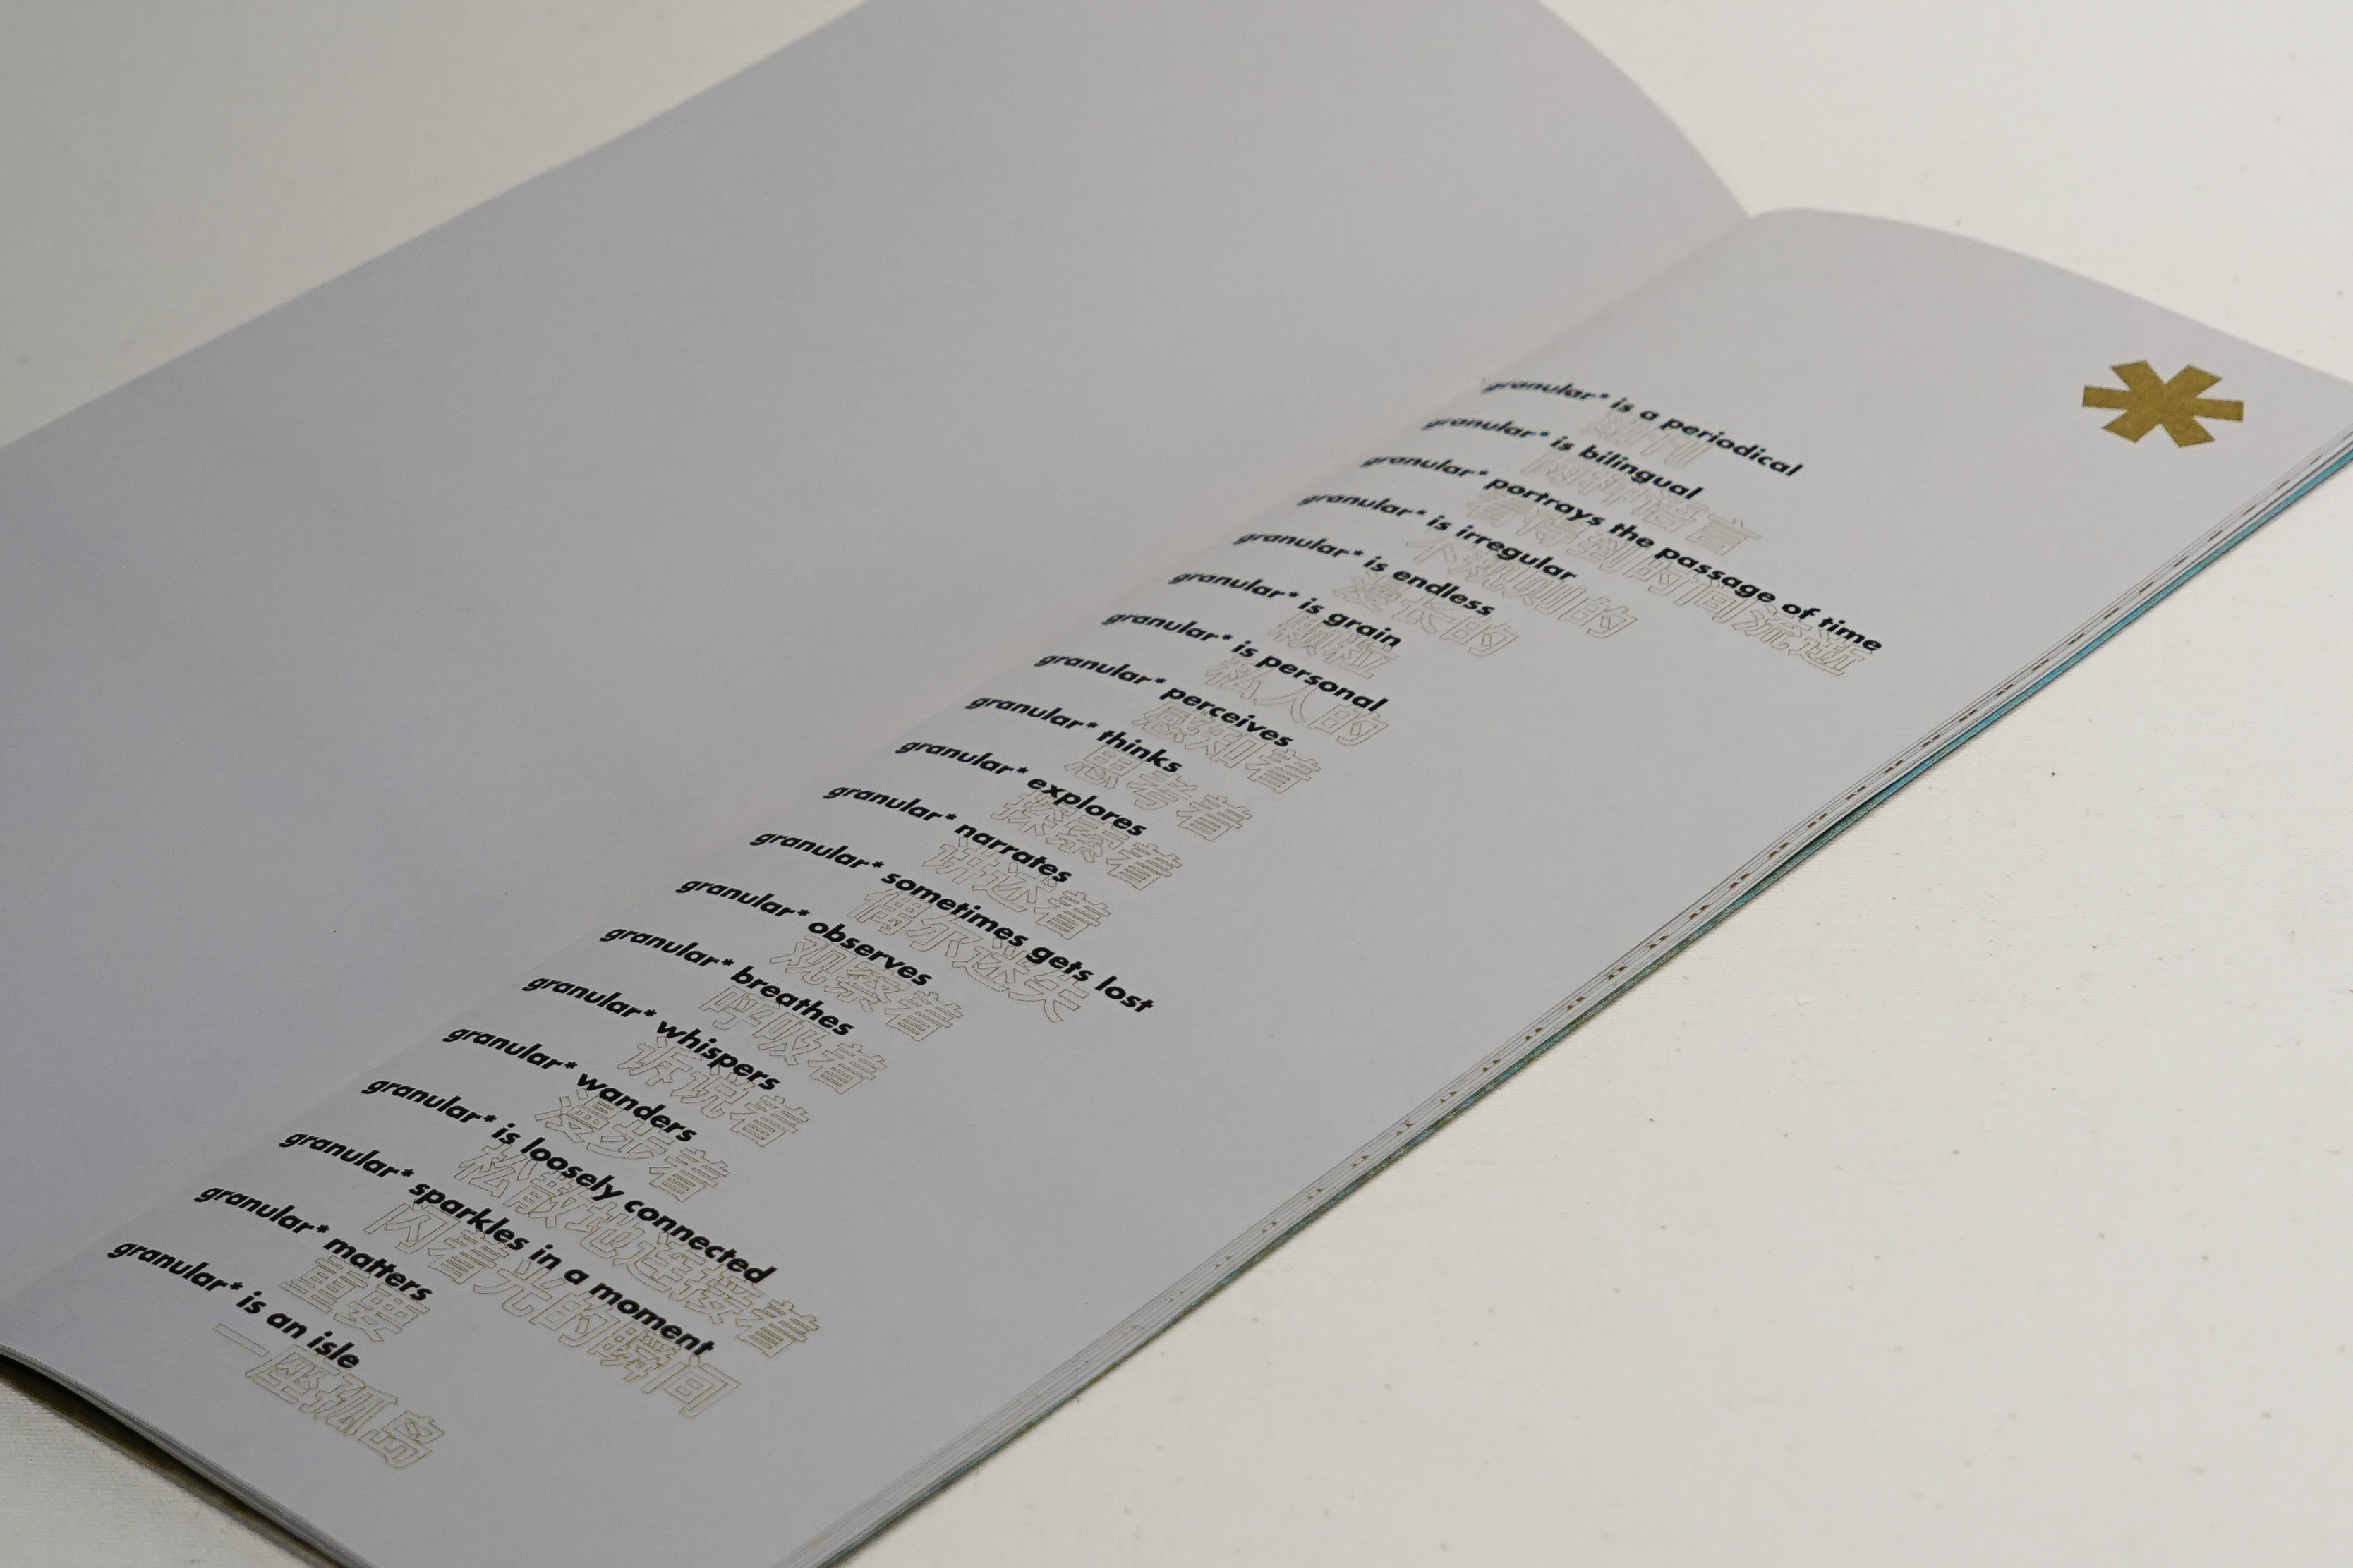 granular* is a periodical
期刊
granular* is bilingual
两种语言
granular* portrays the passage of time
看得到的时间流逝
granular* is irregular
不规则的
granular* is endless
漫长的
granular* is grain
颗粒
granular* is personal
私人的
granular* perceives
感知着
granular* thinks
思考着
granular* explores
探索着
granular* narrates
讲述着
granular* sometimes gets lost
偶尔迷失
granular* observes
观察着
granular* breathes
呼吸着
granular* whispers
诉说着
granular* wanders
漫步着
granular* is loosely connected
松散地连接着
granular* sparkles in a moment
闪着光的瞬间
granular* matters
重要
granular* is an isle
一座孤岛